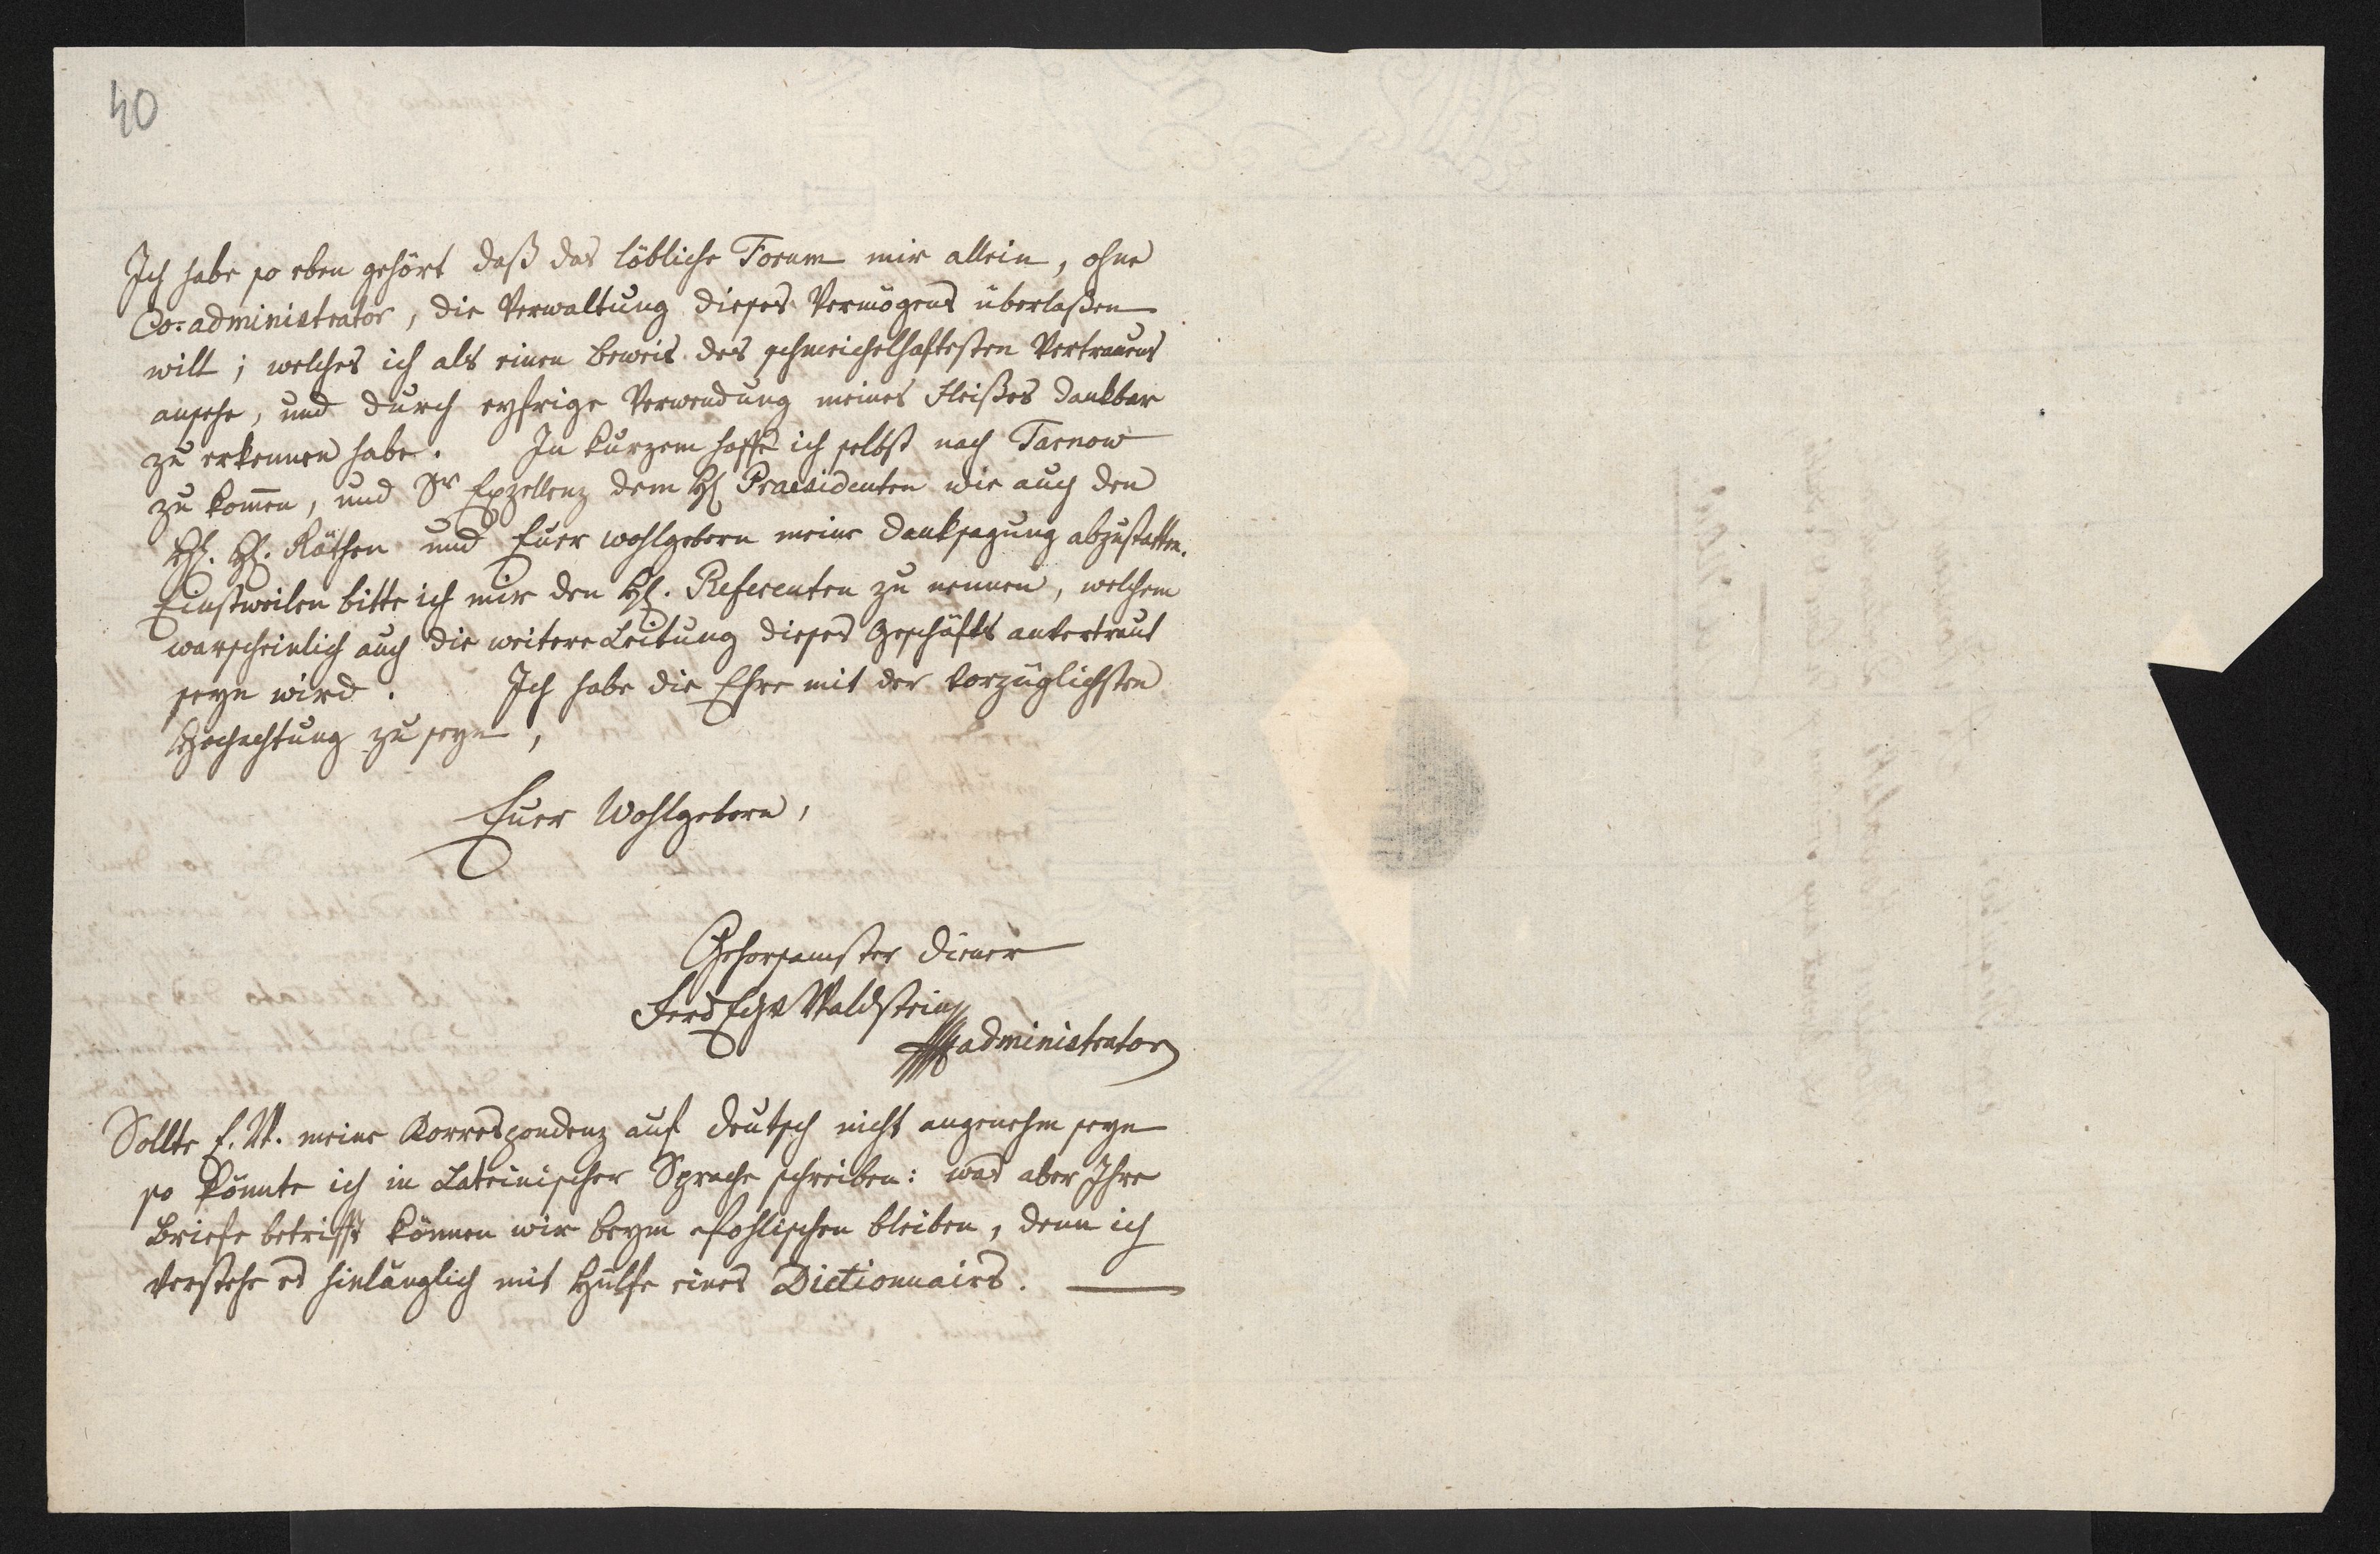 40
Ich habe so eben gehört daß das löbliche Forum mir allein, ohne
Co=administrator, die Verwaltung dieses Vermögens überlaßen
will; welches ich als einen beweis des schmeichelhaftesten Vertrauens
ansehe, und durch eyfrige Verwendung meines Fleißes dankbar
zu erkennen habe. In kurzem hoffe ich selbst nach Tarnow
zu komen, und Sr Exzellenz dem H Praesidenten wie auch den
H. H. Räthen und Euer wohlgeborn meine danksagung abzustatten.
Einstweilen bitte ich mir den H. Referenten zu nennen, welchem
warscheinlich auch die weitere Leitung dieses Geschäfts anvertraut
seyn wird. Ich habe die Ehre mit der vorzüglichsten
Hochachtung zu seyn,
Euer Wohlgeborn,
Gehorsamster diener
Ferd Waldstein
administrator
Sollte E. W. meine Korrespondenz auf deutsch nicht angenehm seyn
so könnte ich in Lateinischer Sprache schreiben: was aber Ihre
Briefe betrifft können wir beym pohlischen bleiben, denn ich
verstehe es hinlänglich mit Hülfe eines Dictionnairs.